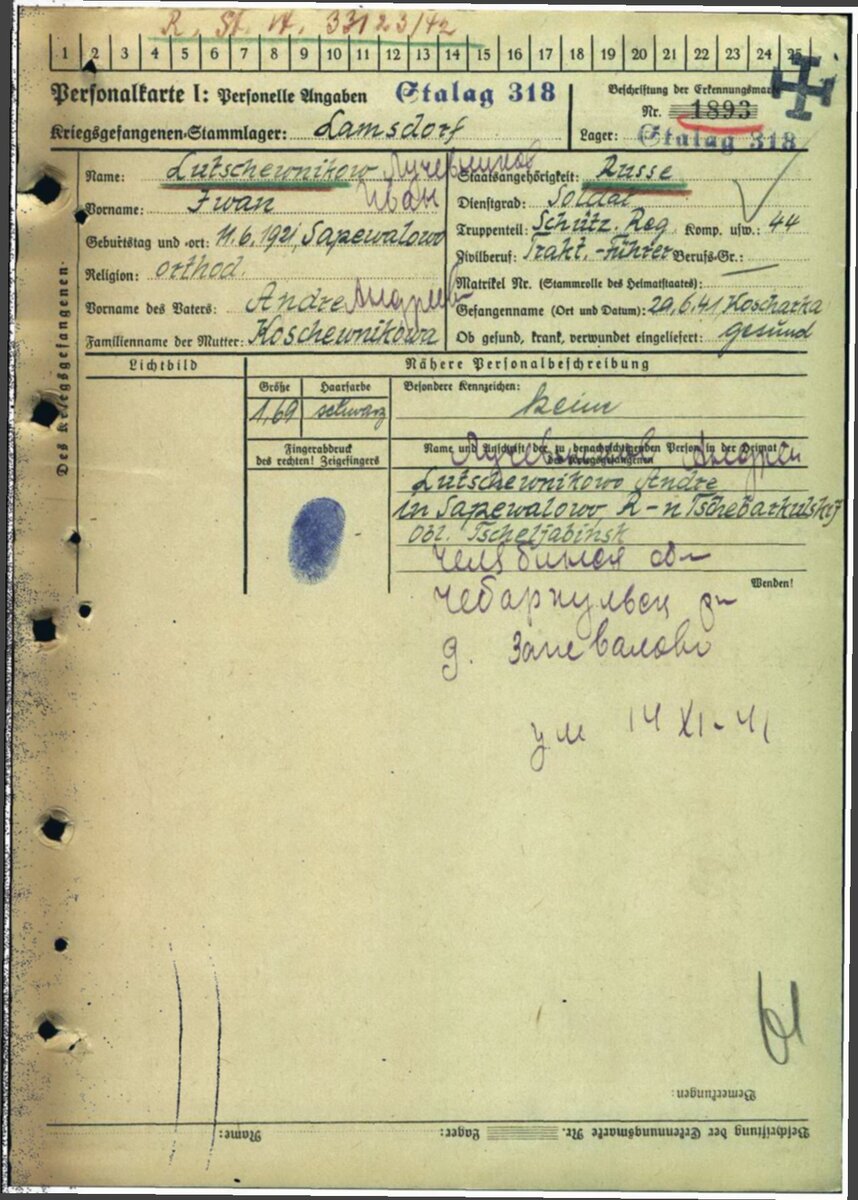 R. St. W. 33123/42
1 2 3 4 5 6 7 8 9 10 11 12 13 14 15 16 17 18 19 20 21 22 23 24 25
Personalkarte I: Personelle Angaben Stalag 318
Kriegsgefangenen-Stammlager: Lamsdorf
Beschriftung der Erkennungsmarke
Nr. 1893
Lager: Stalag 318
Des Kriegsgefangenen
Name: Lutschewnikow Лучевников
Vorname: Iwan Иван
Geburtstag und -ort: 11.6.1921, Sapewalowo
Religion: orthod.
Vorname des Vaters: Andre Андреев
Familienname der Mutter: Koschewnikowa
Staatsangehörigkeit: Russe
Dienstgrad: Soldat
Truppenteil: Schütz. Reg. Komp. usw.: 44
Zivilberuf: Trakt.-Führer Berufs-Gr.:
Matrikel Nr. (Stammrolle des Heimatstaates):
Gefangennahme (Ort und Datum): 29.6.41 Koscharka
Ob gesund, krank, verwundet eingeliefert: gesund
Lichtbild
Nähere Personalbeschreibung
Größe Haarfarbe Besondere Kennzeichen:
1,69 schwarz keine
Fingerabdruck
des rechten! Zeigefingers
Name und Anschrift der zu benachrichtigenden Person in der Heimat
des Kriegsgefangenen
Лучевников Андрей
Lutschewnikowo Andre
in Sapewalowo R-n Tschebarkulskij
Obl. Tscheljabinsk
Wenden!
Челябинск об-
Чебаркульск р-
д. Запевалово
ум 14 XI-41
61
Bemerkungen:
Beschriftung der Erkennungsmarke Nr. Lager: Name: